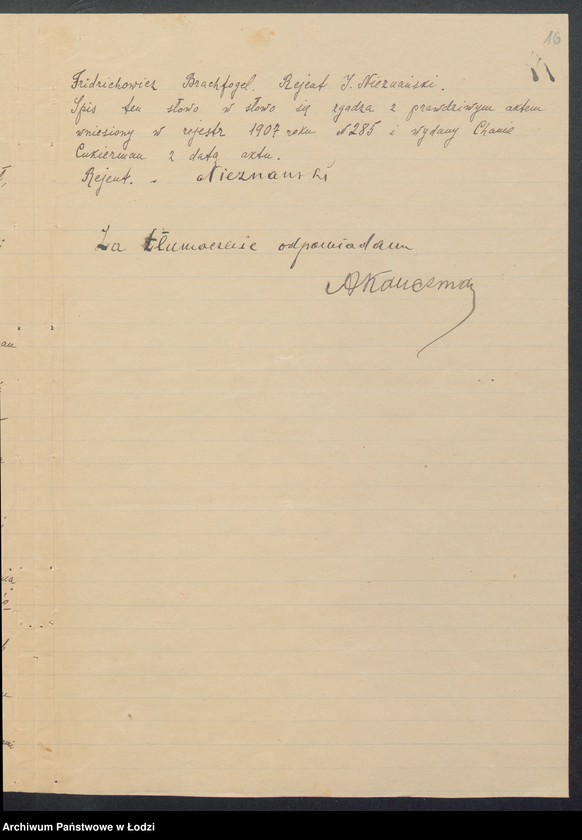 16
Fridrichowicz Brachfogel. Rejent J. Nieznański.
Spis ten słowo w słowo się zgadza z prawdziwym aktem
wniesiony w rejestr 1907 roku N285 i wydany Chanie
Cukierman z datą aktu.
Rejent. - Nieznański
Za tłumaczenie odpowiadam
Archiwum Państwowe w Łodzi